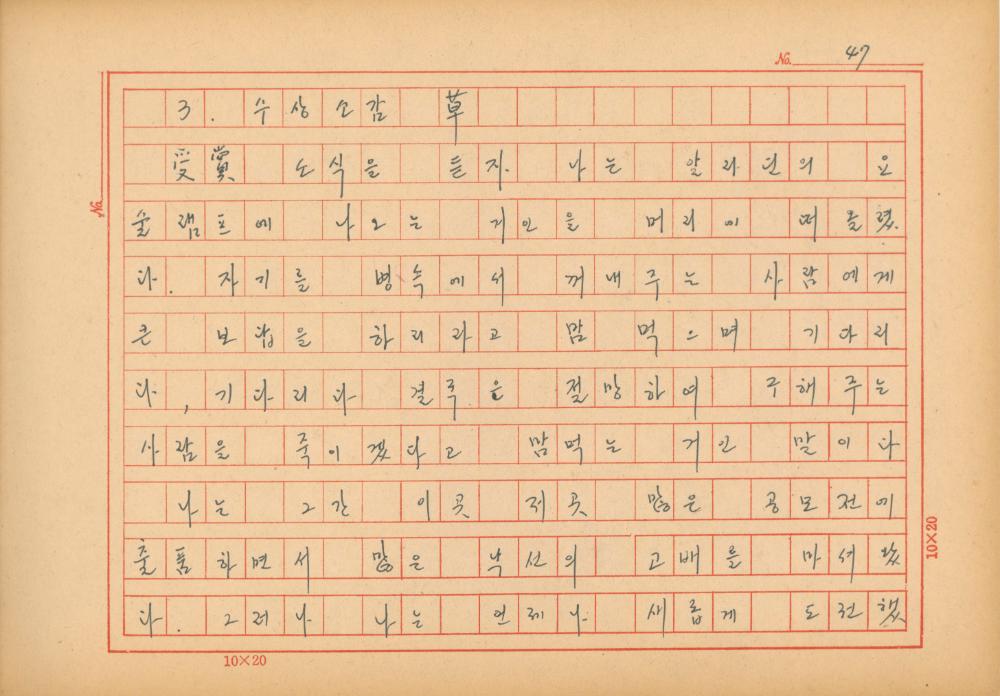 No. 47
3. 수상소감 草
受賞 소식을 듣자 나는 알라딘의 요
술램프에 나오는 거인을 머리에 떠올렸
다. 자기를 병속에서 꺼내주는 사람에게
큰 보답을 하리라고 맘 먹으며 기다리
다, 기다리다 결국은 절망하여 구해주는
사람을 죽이겠다고 맘먹는 거인 말이다
나는 그간 이곳 저곳 많은 공모전에
출품하면서 많은 낙선의 고배를 마셔왔
다. 그러나 나는 언제나 새롭게 도전했
No.
10×20
10×20